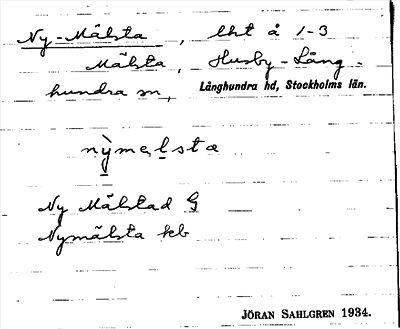 Ny-Mälsta, lht å 1-3
Mälsta, Husby-Lång-
hundra sn, Långhundra hd, Stockholms län.
nỳmelsta
Ny Mälstad G
Nymälsta kb
JÖRAN SAHLGREN 1934.